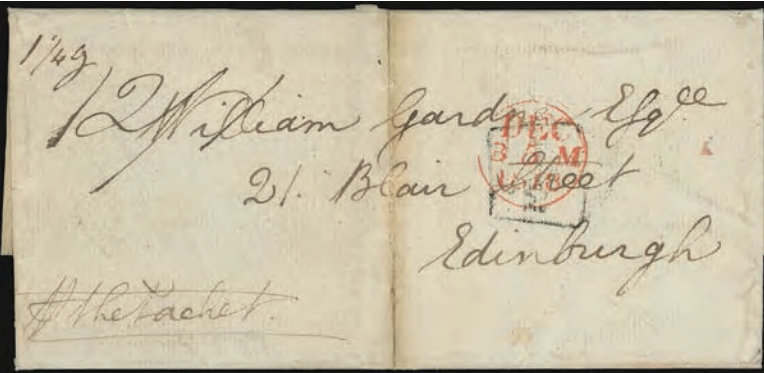 1 1/4 9
12 William Gardner Esqre
21. Blair Street
Edinburgh
DEC
8 A M
18
p the Packet.